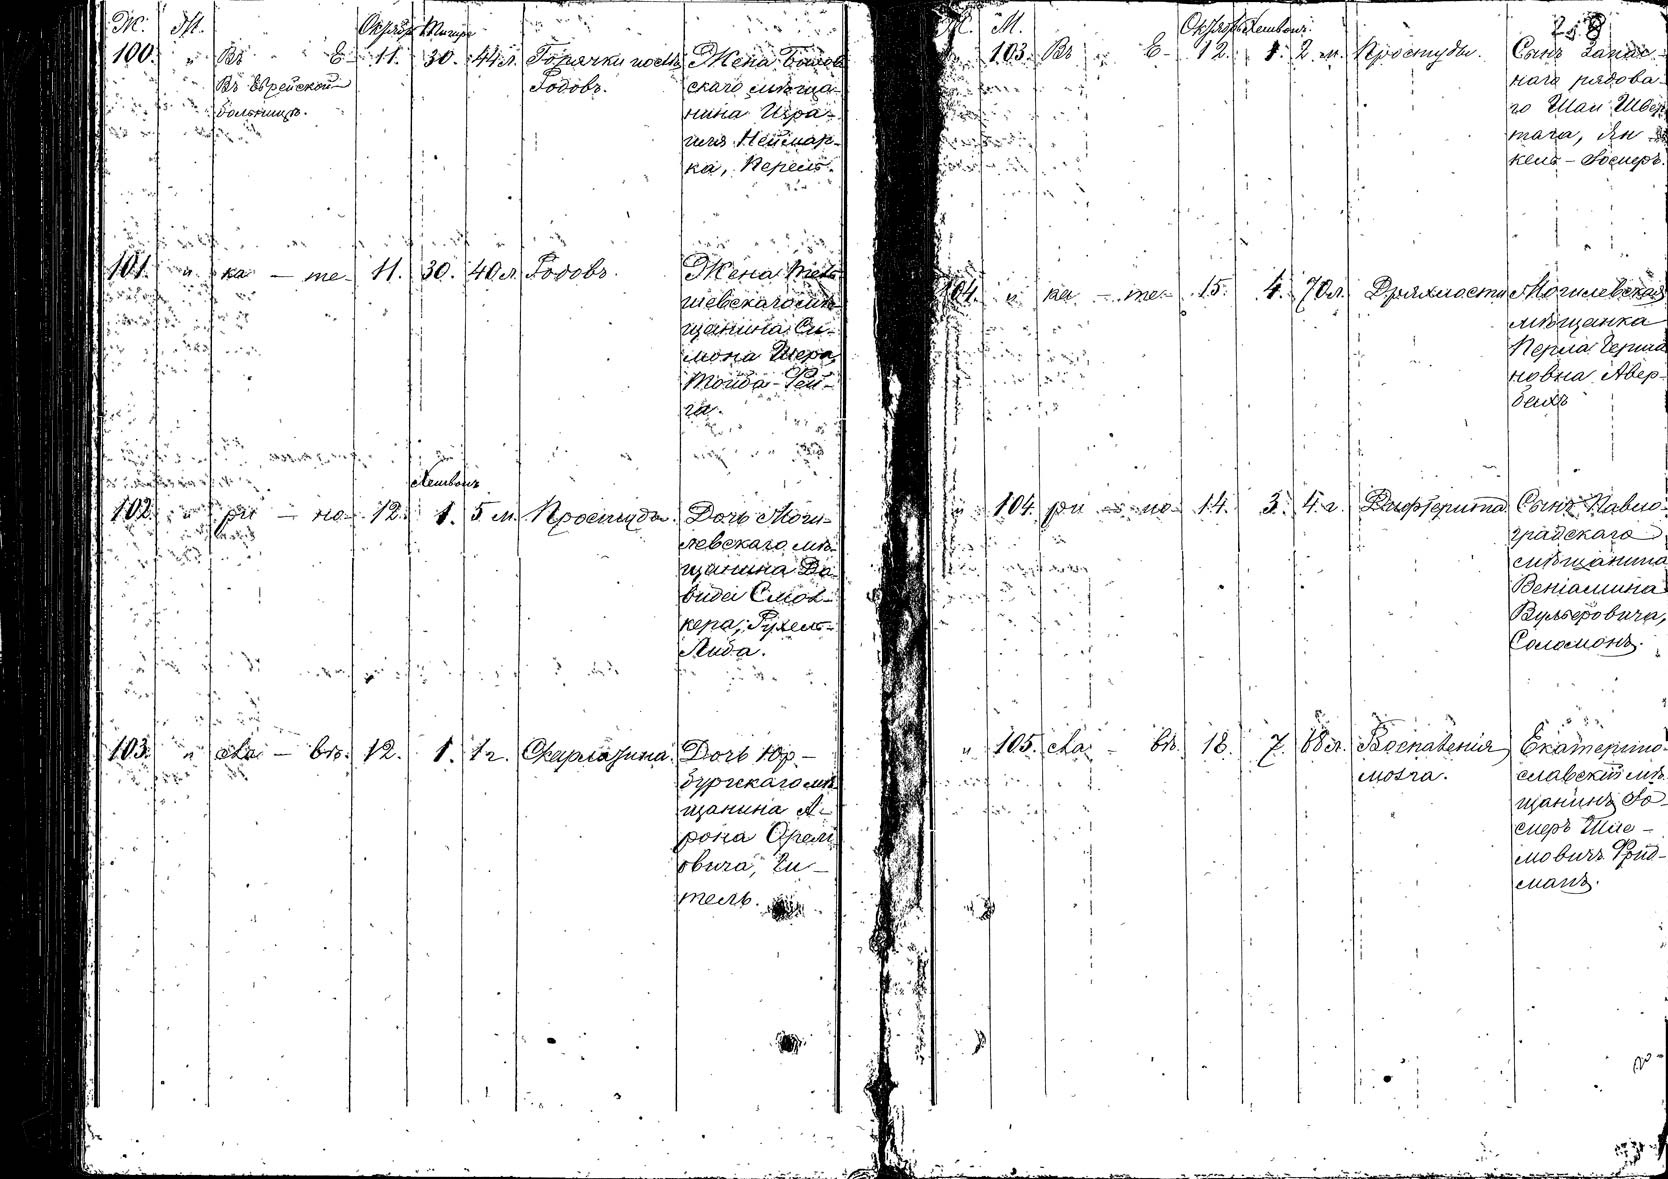 Ж. М. Октябр Тишри
100. " Въ Е- 11. 30. 44 л. Горячки послѣ Жена Бышов
Въ Еврейской Родовъ. скаго мѣща-
больницѣ. нина Изра-
иля Неймар-
ка, Перель.
101. " ка - те- 11. 30. 40 л. Родовъ. Жена Тель-
шевскаго мѣ-
щанина Си-
мона Шера,
Тойба-Фей-
га.
Хешвонъ
102. " ри - но- 12. 1. 5 м. Простуды. Дочь Моги-
левскаго мѣ-
щанина Да-
вида Смол-
кера, Рухель-
Либа.
103. " сла - въ. 12. 1. 1 г. Скарлатина. Дочь Юр-
бургскаго мѣ-
щанина А-
рона Орели
овича, Ги-
тель.
Ж. М. Октябрь Хешвонъ 258
" 103. Въ " Е- 12. 1. 2 м. Простуды. Сынъ Запас-
наго рядова-
го Шаи Швер
тага, Ян-
кель-Іосифъ.
104. " ка - те- 15. 4. 70 л. Дряхлости Могилевская
мѣщанка
Перла Герша
новна Авер-
бахъ
" 104. ри - но- 14. 3. 4 г. Дифтерита Сынъ Павло-
градскаго
мѣщанина
Веніамина
Вульфовича,
Соломонъ.
" 105. сла - въ. 18. 7. 68 л. Воспаленія Екатерино-
мозга. славскій мѣ-
щанинъ Іо-
сифъ Шле-
мовичъ Фрид-
манъ.